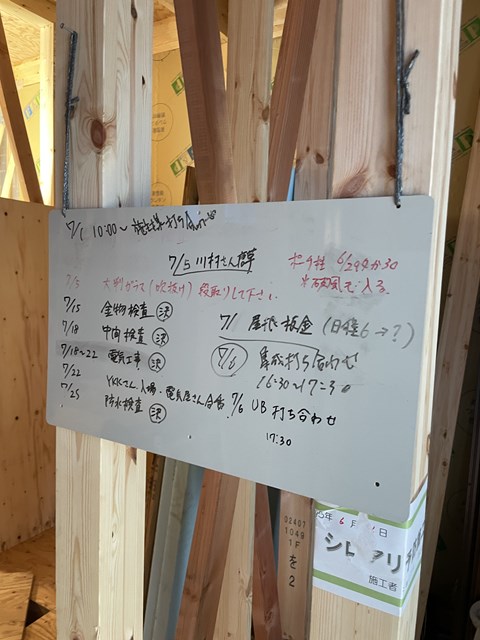 7/1 10:00〜 施主様 打ち合わせ
7/5 川村さん
ポーチ柱 6/29
7/5 大判ガラス(吹抜け)段取りして下さい。
7/15 金物検査 決
7/18 中間検査 決
7/18〜22 電気工事 決
7/22 YKKさん入場・電気屋さん
7/25 防水検査 決
7/1 屋根板金(日程6→?)
7/6 打ち合わせ
16:30〜17:30
7/6 UB打ち合わせ
17:30
02407
1049
1F
を
2
年 6 月 日
シロアリ
施工者